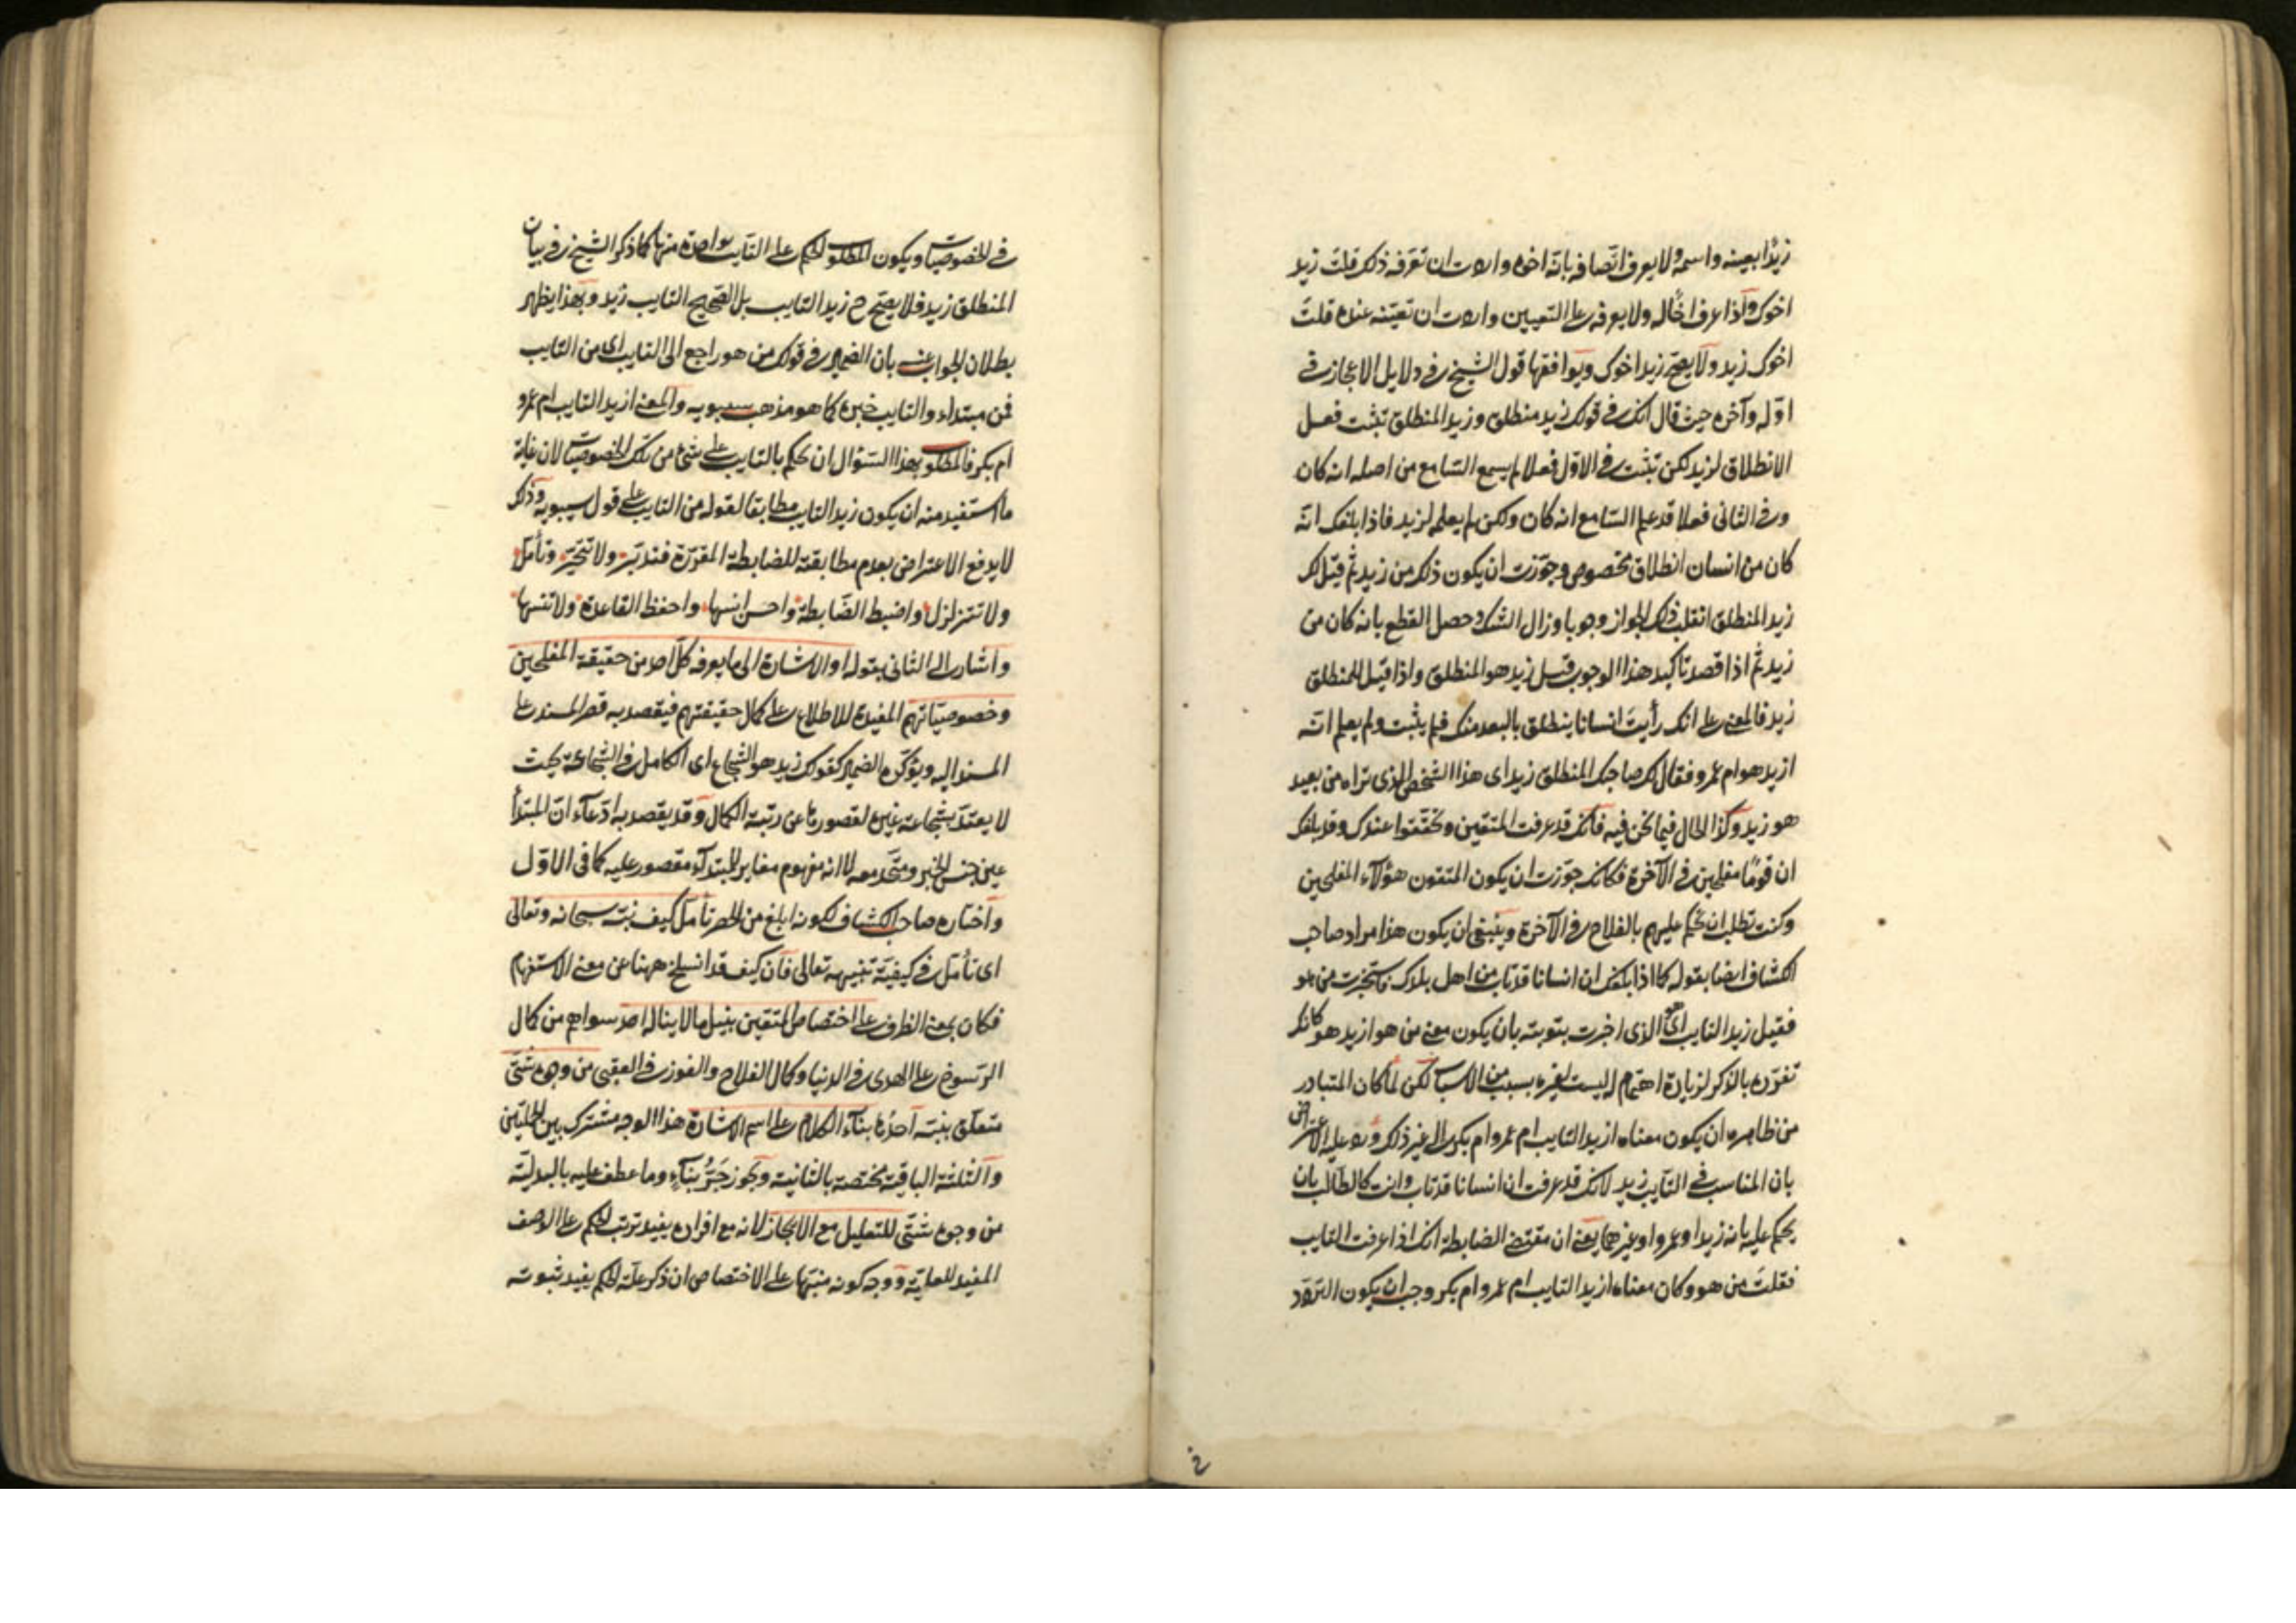 زيدًا بعينه واسمه ولا يعرف اتصافه بانه اخوه واردت ان تعرفه ذلك قلت زيد
اخوك واذا عرف اخًا له ولا يعرفه على التعيين واردت ان تعينه عنده قلت
اخوك زيد ولا يصح زيد اخوك ويوافقها قول الشيخ في دلايل الاعجاز في
اوله وآخره حيث قال انك في قولك زيد منطلق وزيد المنطلق تثبت فعل
الانطلاق لزيد لكن تثبت في الاول فعلا لم يسمع السامع من اصله انه كان
وفي الثاني فعلا قد علم السامع انه كان ولكن لم يعلمه لزيد فاذا بلغك انه
كان من انسان انطلاق مخصوص وجوزت ان يكون ذلك من زيد ثم قيل لك
زيد المنطلق انقلب ذلك الجواز وجوبا وزال الشك وحصل القطع بانه كان من
زيد ثم اذا قصد تاكيد هذا الوجوب قيل زيد هو المنطلق واذا قيل المنطلق
زيد فالمعنى على انك رأيت انسانا ينطلق بالبعد منك فلم يثبت ولم يعلم انه
ازيد هو ام عمرو فقال لك صاحبك المنطلق زيد اى هذا الشخص الذى تراه من بعيد
هو زيد وكذا الحال فيما نحن فيه فانك قد عرفت المتقين وتحققوا عندك وقد بلغك
ان قومًا مفلحين في الآخرة فكانك جوزت ان يكون المتقون هؤلاء المفلحين
وكنت تطلب ان تحكم عليهم بالفلاح في الآخرة وينبغى ان يكون هذا مراد صاحب
الكشاف ايضا بقوله كما اذا بلغك ان انسانا قد تاب من اهل بلدك فاستخبرت من هو
فقيل زيد التايب اى هو الذى اخبرت بتوبته بان يكون معنى من هو ازيد هو كانك
تفرده بالذكر لزيادة اهتمام ليست لغيره بسبب من الاسباب لكن لما كان المتبادر
من ظاهره ان يكون معناه ازيد التايب ام عمرو ام بكر الى غير ذلك ورد عليه الاعتراض
بان المناسب في التايب زيد لانك قد عرفت ان انسانا قد تاب وانت كالطالب بان
يحكم عليه بانه زيد او عمرو او غيرهما يعنى ان مقتضى الضابطة انك اذا عرفت التايب
فقلت من هو وكان معناه ازيد التايب ام عمرو ام بكر وجب ان يكون التردد
في الخصوصيات ويكون المطلوب الحكم على التايب بواحدة منها كما ذكر الشيخ في بيان
المنطلق زيد فلا يصح ح زيد التايب بل الصحيح التايب زيد وبهذا يظهر
بطلان الجواب عنه بان الضمير في قولك من هو راجع الى التايب اى من التايب
فمن مبتداء والتايب خبره كما هو مذهب سيبويه والمعنى ازيد التايب ام عمرو
ام بكر فالمطلوب بهذا السؤال ان يحكم بالتايب على شئ من تلك الخصوصيات لان غاية
ما استفيد منه ان يكون زيد التايب مطابقا لقوله من التايب على قول سيبويه وذلك
لا يدفع الاعتراض بعدم مطابقته للضابطة المقررة فتدبر ولا تتحير وتأمل
ولا تتزلزل واضبط الضابطة واحسن انسها واحفظ القاعدة ولا تنسها
واشار الى الثانى بقوله او الاشارة الى ما يعرفه كل احد من حقيقة المفلحين
وخصوصياتهم المفيدة للاطلاع على كمال حقيقتهم فيقصد به قصر المسند على
المسند اليه ويؤكده الضمير كقولك زيد هو الشجاع اى الكامل في الشجاعة بحيث
لا يعتد بشجاعة غيره لقصورها عن رتبة الكمال وقد يقصد به ادعاء ان المبتدأ
عين جنس الخبر ومتحد معه لا انه مفهوم مغاير للمبتدأ مقصور عليه كما في الاول
واختاره صاحب الكشاف لكونه ابلغ من الحصر تأمل كيف نبه سبحانه وتعالى
اى تأمل في كيفية تنبيهه تعالى فان كيف قد انسلخ ههنا عن معنى الاستفهام
فكان بمعنى الظرف على اختصاص المتقين بنيل ما لا يناله احد سواهم من كمال
الرسوخ على الهدى في الدنيا وكمال الفلاح والفوز في العقبى من وجوه شتى
متعلق بنبه احدها بناء الكلام على اسم الاشارة هذا الوجه مشترك بين الجملتين
والثلثة الباقية مختصة بالثانية ويجوز جَرُّ بناء وما عطف عليه بالبدلية
من وجوه شتى للتعليل مع الايجاز لانه مع افراده يفيد ترتب الحكم على الوصف
المفيد للعلية ووجه كونه منبها على الاختصاص ان ذكر علة الحكم يفيد ثبوته